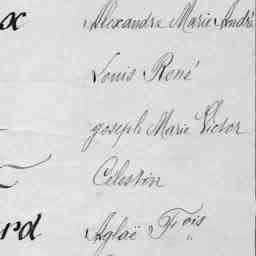 x Alexandre Marie André
Louis René
Joseph Marie Victor
Celestin
rd Aglaë Fois